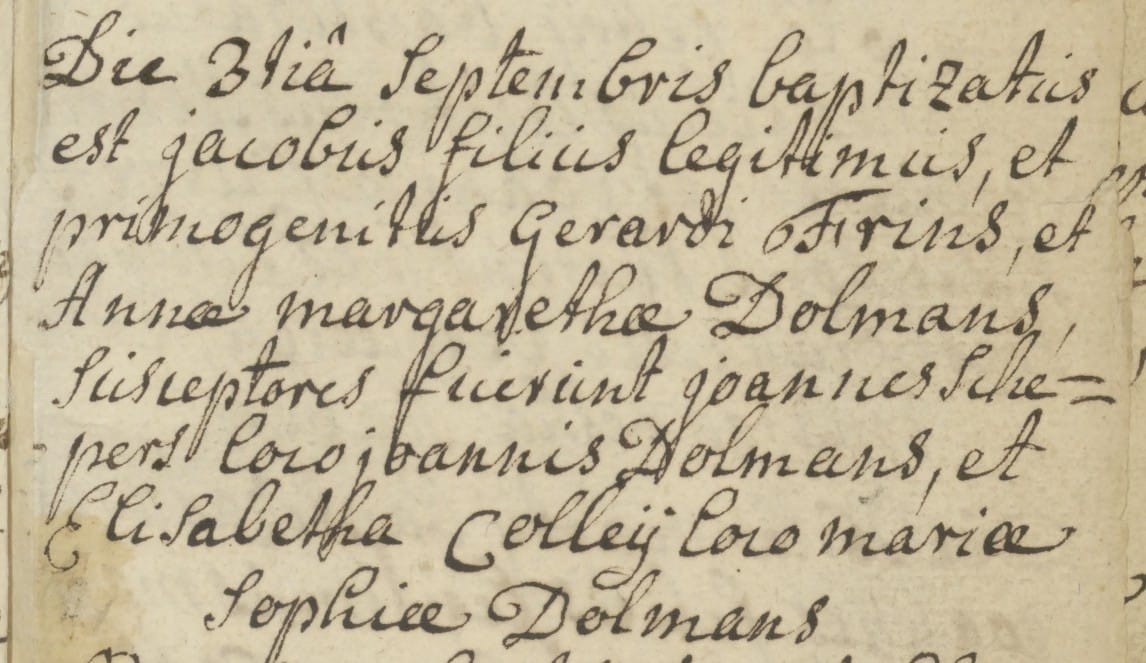 Die 3tiâ Septembris baptizatus
est jacobus filius legitimus, et
primogenitus Gerardi Frins, et
Annæ margarethæ Dolmans,
Susceptores fuerunt joannes Sche=
pers loco joannis Dolmans, et
Elisabetha Colleÿ loco mariæ
Sophiæ Dolmans